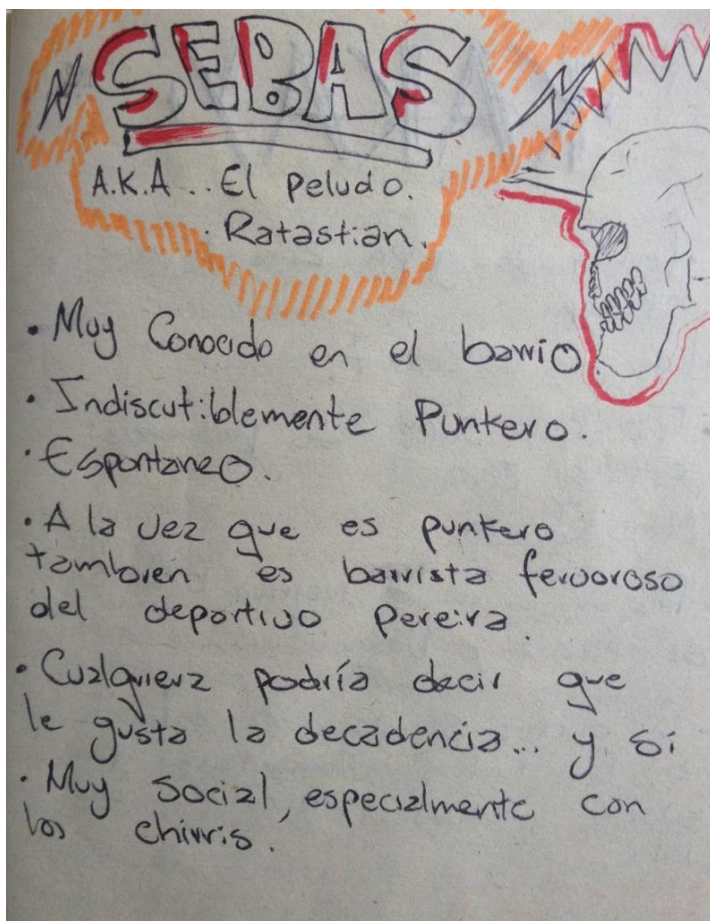 SEBAS
A.K.A.. El peludo.
. Ratastian.
• Muy Conocido en el barrio
• Indiscutiblemente Punkero.
• Espontaneo.
• A la vez que es punkero
tambien es barrista fervoroso
del deportivo pereira.
• Cualquiera podría decir que
le gusta la decadencia... y si
• Muy social, especialmente con
los chirris.